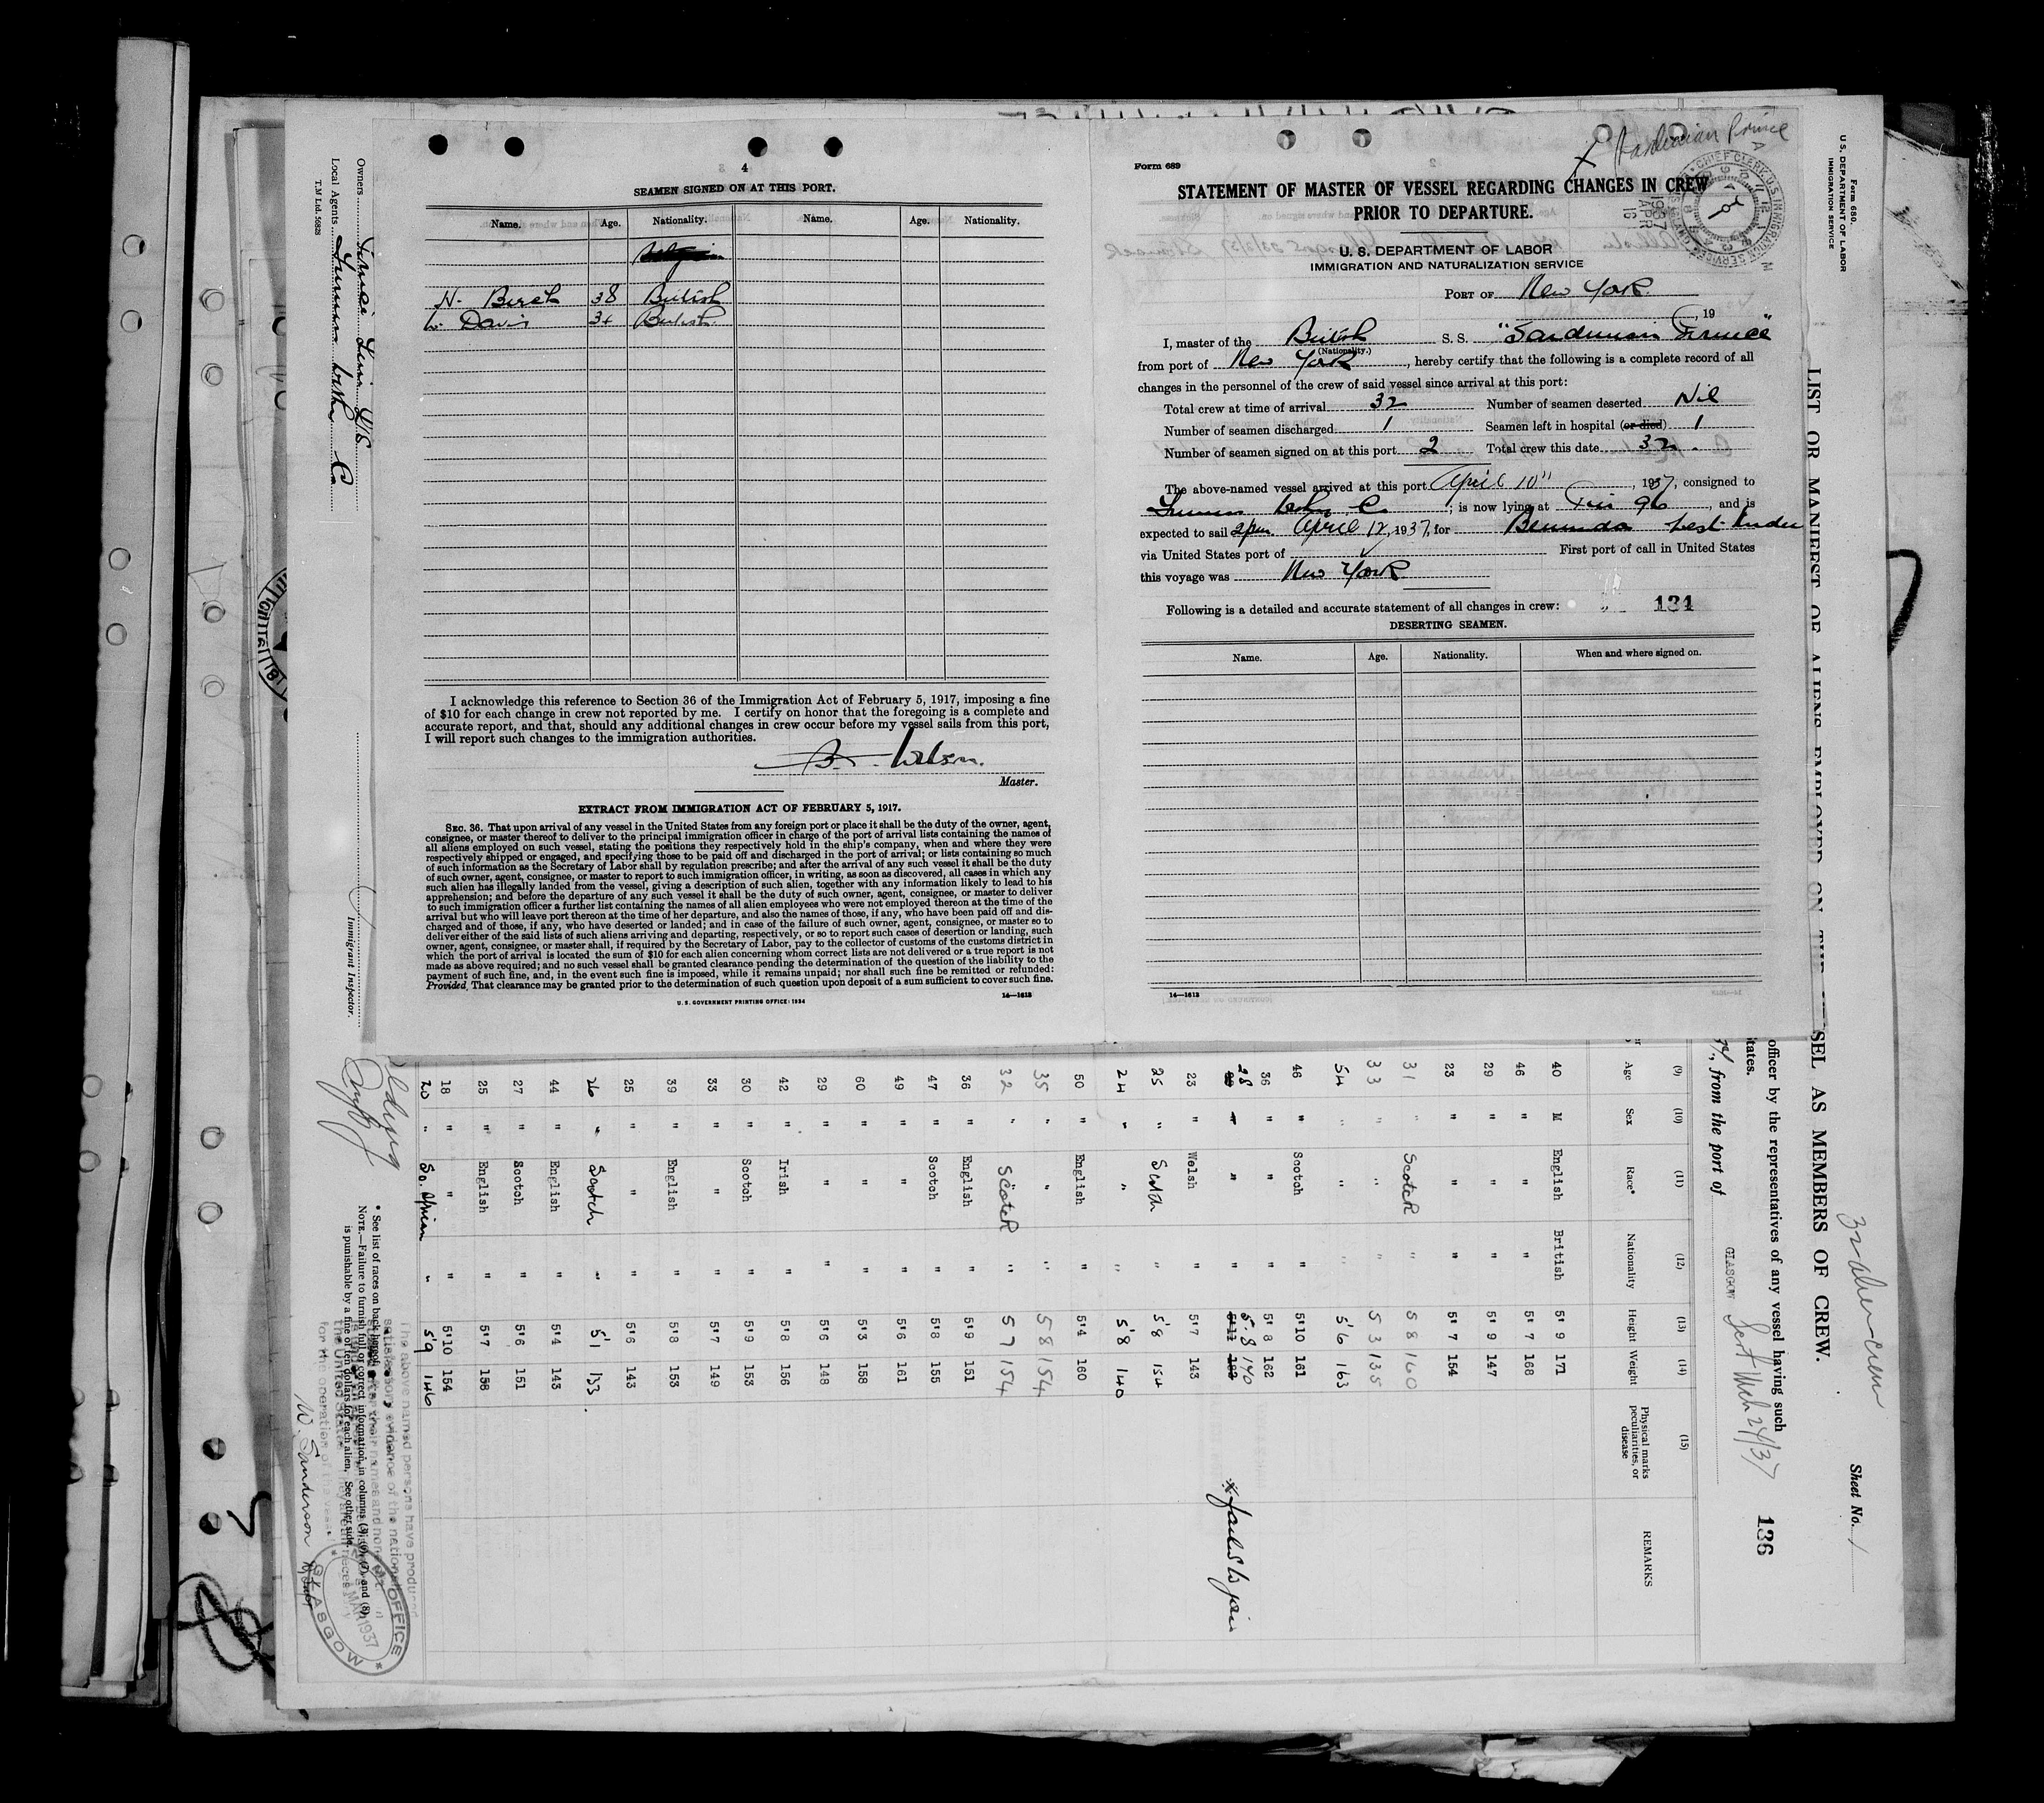 4
SEAMEN SIGNED ON AT THIS PORT.
Name. Age. Nationality. Name. Age. Nationality.
H. Birch 38 British
Davis 34 British
I acknowledge this reference to Section 36 of the Immigration Act of February 5, 1917, imposing a fine
of $10 for each change in crew not reported by me. I certify on honor that the foregoing is a complete and
accurate report, and that, should any additional changes in crew occur before my vessel sails from this port,
I will report such changes to the immigration authorities.
Wilson.
Master.
EXTRACT FROM IMMIGRATION ACT OF FEBRUARY 5, 1917.
SEC. 36. That upon arrival of any vessel in the United States from any foreign port or place it shall be the duty of the owner, agent,
consignee, or master thereof to deliver to the principal immigration officer in charge of the port of arrival lists containing the names of
all aliens employed on such vessel, stating the positions they respectively hold in the ship's company, when and where they were
respectively shipped or engaged, and specifying those to be paid off and discharged in the port of arrival; or lists containing so much
of such information as the Secretary of Labor shall by regulation prescribe; and after the arrival of any such vessel it shall be the duty
of such owner, agent, consignee, or master to report to such immigration officer, in writing, as soon as discovered, all cases in which any
such alien has illegally landed from the vessel, giving a description of such alien, together with any information likely to lead to his
apprehension; and before the departure of any such vessel it shall be the duty of such owner, agent, consignee, or master to deliver
to such immigration officer a further list containing the names of all alien employees who were not employed thereon at the time of the
arrival but who will leave port thereon at the time of her departure, and also the names of those, if any, who have been paid off and dis-
charged and of those, if any, who have deserted or landed; and in case of the failure of such owner, agent, consignee, or master so to
deliver either of the said lists of such aliens arriving and departing, respectively, or so to report such cases of desertion or landing, such
owner, agent, consignee, or master shall, if required by the Secretary of Labor, pay to the collector of customs of the customs district in
which the port of arrival is located the sum of $10 for each alien concerning whom correct lists are not delivered or a true report is not
made as above required; and no such vessel shall be granted clearance pending the determination of the question of the liability to the
payment of such fine, and, in the event such fine is imposed, while it remains unpaid; nor shall such fine be remitted or refunded:
Provided, That clearance may be granted prior to the determination of such question upon deposit of a sum sufficient to cover such fine.
U. S. GOVERNMENT PRINTING OFFICE: 1934 14—1613
Sardinian Prince
Form 689
STATEMENT OF MASTER OF VESSEL REGARDING CHANGES IN CREW
PRIOR TO DEPARTURE.
1937 APR 16
U. S. DEPARTMENT OF LABOR
IMMIGRATION AND NATURALIZATION SERVICE
PORT OF New York
, 19
I, master of the British S. S. "Sardinian Prince"
(Nationality.)
from port of New York, hereby certify that the following is a complete record of all
changes in the personnel of the crew of said vessel since arrival at this port:
Total crew at time of arrival 32 Number of seamen deserted Nil
Number of seamen discharged 1 Seamen left in hospital (or died) 1
Number of seamen signed on at this port 2 Total crew this date 32.
The above-named vessel arrived at this port April 10", 1937, consigned to
Furness Withy Co; is now lying at Pier 96, and is
expected to sail 2pm April 12, 1937, for Bermuda West Indies
via United States port of First port of call in United States
this voyage was New York
Following is a detailed and accurate statement of all changes in crew: 134
DESERTING SEAMEN.
Name. Age. Nationality. When and where signed on.
14—1613
Form 680.
U. S. DEPARTMENT OF LABOR
IMMIGRATION SERVICE
LIST OR MANIFEST OF ALIENS EMPLOYED ON THE SEL AS MEMBERS OF CREW.
32 alien crew
Sheet No. 1
136
officer by the representatives of any vessel having such
tates.
, from the port of GLASGOW Mch 24/37
(9) (10) (11) (12) (13) (14) (15)
Age Sex Race* Nationality Height Weight Physical marks peculiarities, or disease REMARKS
40 M English British 5' 9 171
46 " " " 5' 7 168
29 " " " 5' 9 147
23 " " " 5' 7 154
31 " Scotch " 5 8 160
33 " " " 5 3 135
54 " " " 5'6 163
46 " Scotch " 5'10 161
36 " " " 5' 8 162
28 " " " 5.8 170 * failed to join
23 " Welsh " 5'7 143
25 " Scotch " 5'8 154
24 " " " 5'8 140
50 " English " 5'4 160
35 " " " 5 8 154
32 " Scotch " 5 7 154
36 " English " 5'9 151
47 " Scotch " 5'8 155
49 " " " 5'6 161
60 " " " 5'3 158
29 " " " 5'6 148
42 " Irish " 5'8 156
30 " Scotch " 5'9 153
33 " " " 5'7 149
39 " English " 5'8 153
25 " " " 5'6 143
26 " Scotch " 5'1 133
44 " English " 5'4 143
27 " Scotch " 5'6 151
25 " English " 5'7 158
18 " " " 5'10 154
20 " So. African " 5'9 146
* See list of races on back hereof.
NOTE.—Failure to furnish full or correct information in columns (3), (6), (7), and (8)
is punishable by a fine of ten dollars for each alien. See other side.
W. Sanderson
OFFICE GLASGOW MAR 1937
Owners Prince Line Ltd
Local Agents Furness Withy Co
T.M Ltd. 55828
Immigrant Inspector.